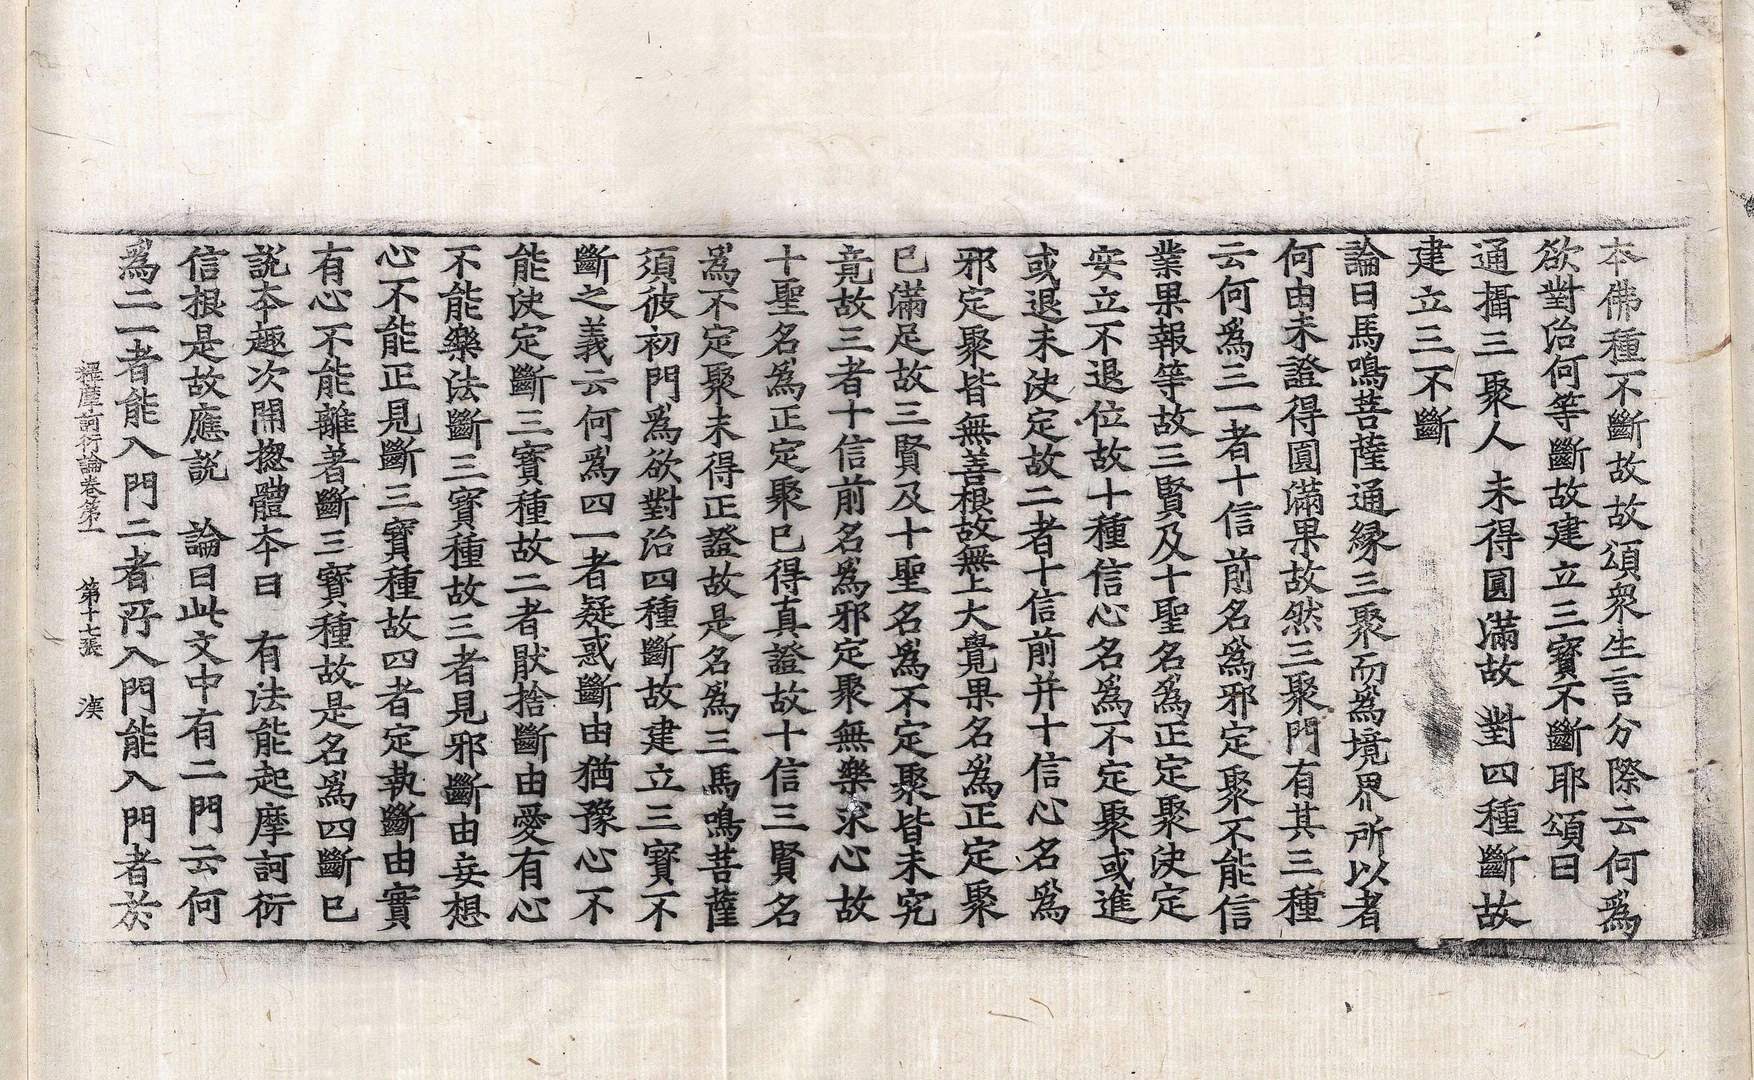 本佛種不斷故故頌衆生言分際云何爲
欲對治何等斷故建立三寶不斷耶頌曰
通攝三聚人 未得圓滿故 對四種斷故
建立三不斷
論曰馬鳴菩薩通緣三聚而爲境界所以者
何由未證得圓滿果故然三聚門有其三種
云何爲三一者十信前名爲邪定聚不能信
業果報等故三賢及十聖名爲正定聚決定
安立不退位故十種信心名爲不定聚或進
或退未決定故二者十信前并十信心名爲
邪定聚皆無善根故無上大覺果名爲正定聚
已滿足故三賢及十聖名爲不定聚皆未究
竟故三者十信前名爲邪定聚無樂求心故
十聖名爲正定聚已得真證故十信三賢名
爲不定聚未得正證故是名爲三馬鳴菩薩
須彼初門爲欲對治四種斷故建立三寶不
斷之義云何爲四一者疑惑斷由猶豫心不
能決定斷三寶種故二者猒捨斷由愛有心
不能樂法斷三寶種故三者見邪斷由妄想
心不能正見斷三寶種故四者定執斷由實
有心不能離著斷三寶種故是名爲四斷已
說夲趣次開揔體夲曰 有法能起摩訶衍
信根是故應説 論曰此文中有二門云何
爲二一者能入門二者所入門能入門者於
釋摩訶衍論卷第一 第十七張 漢